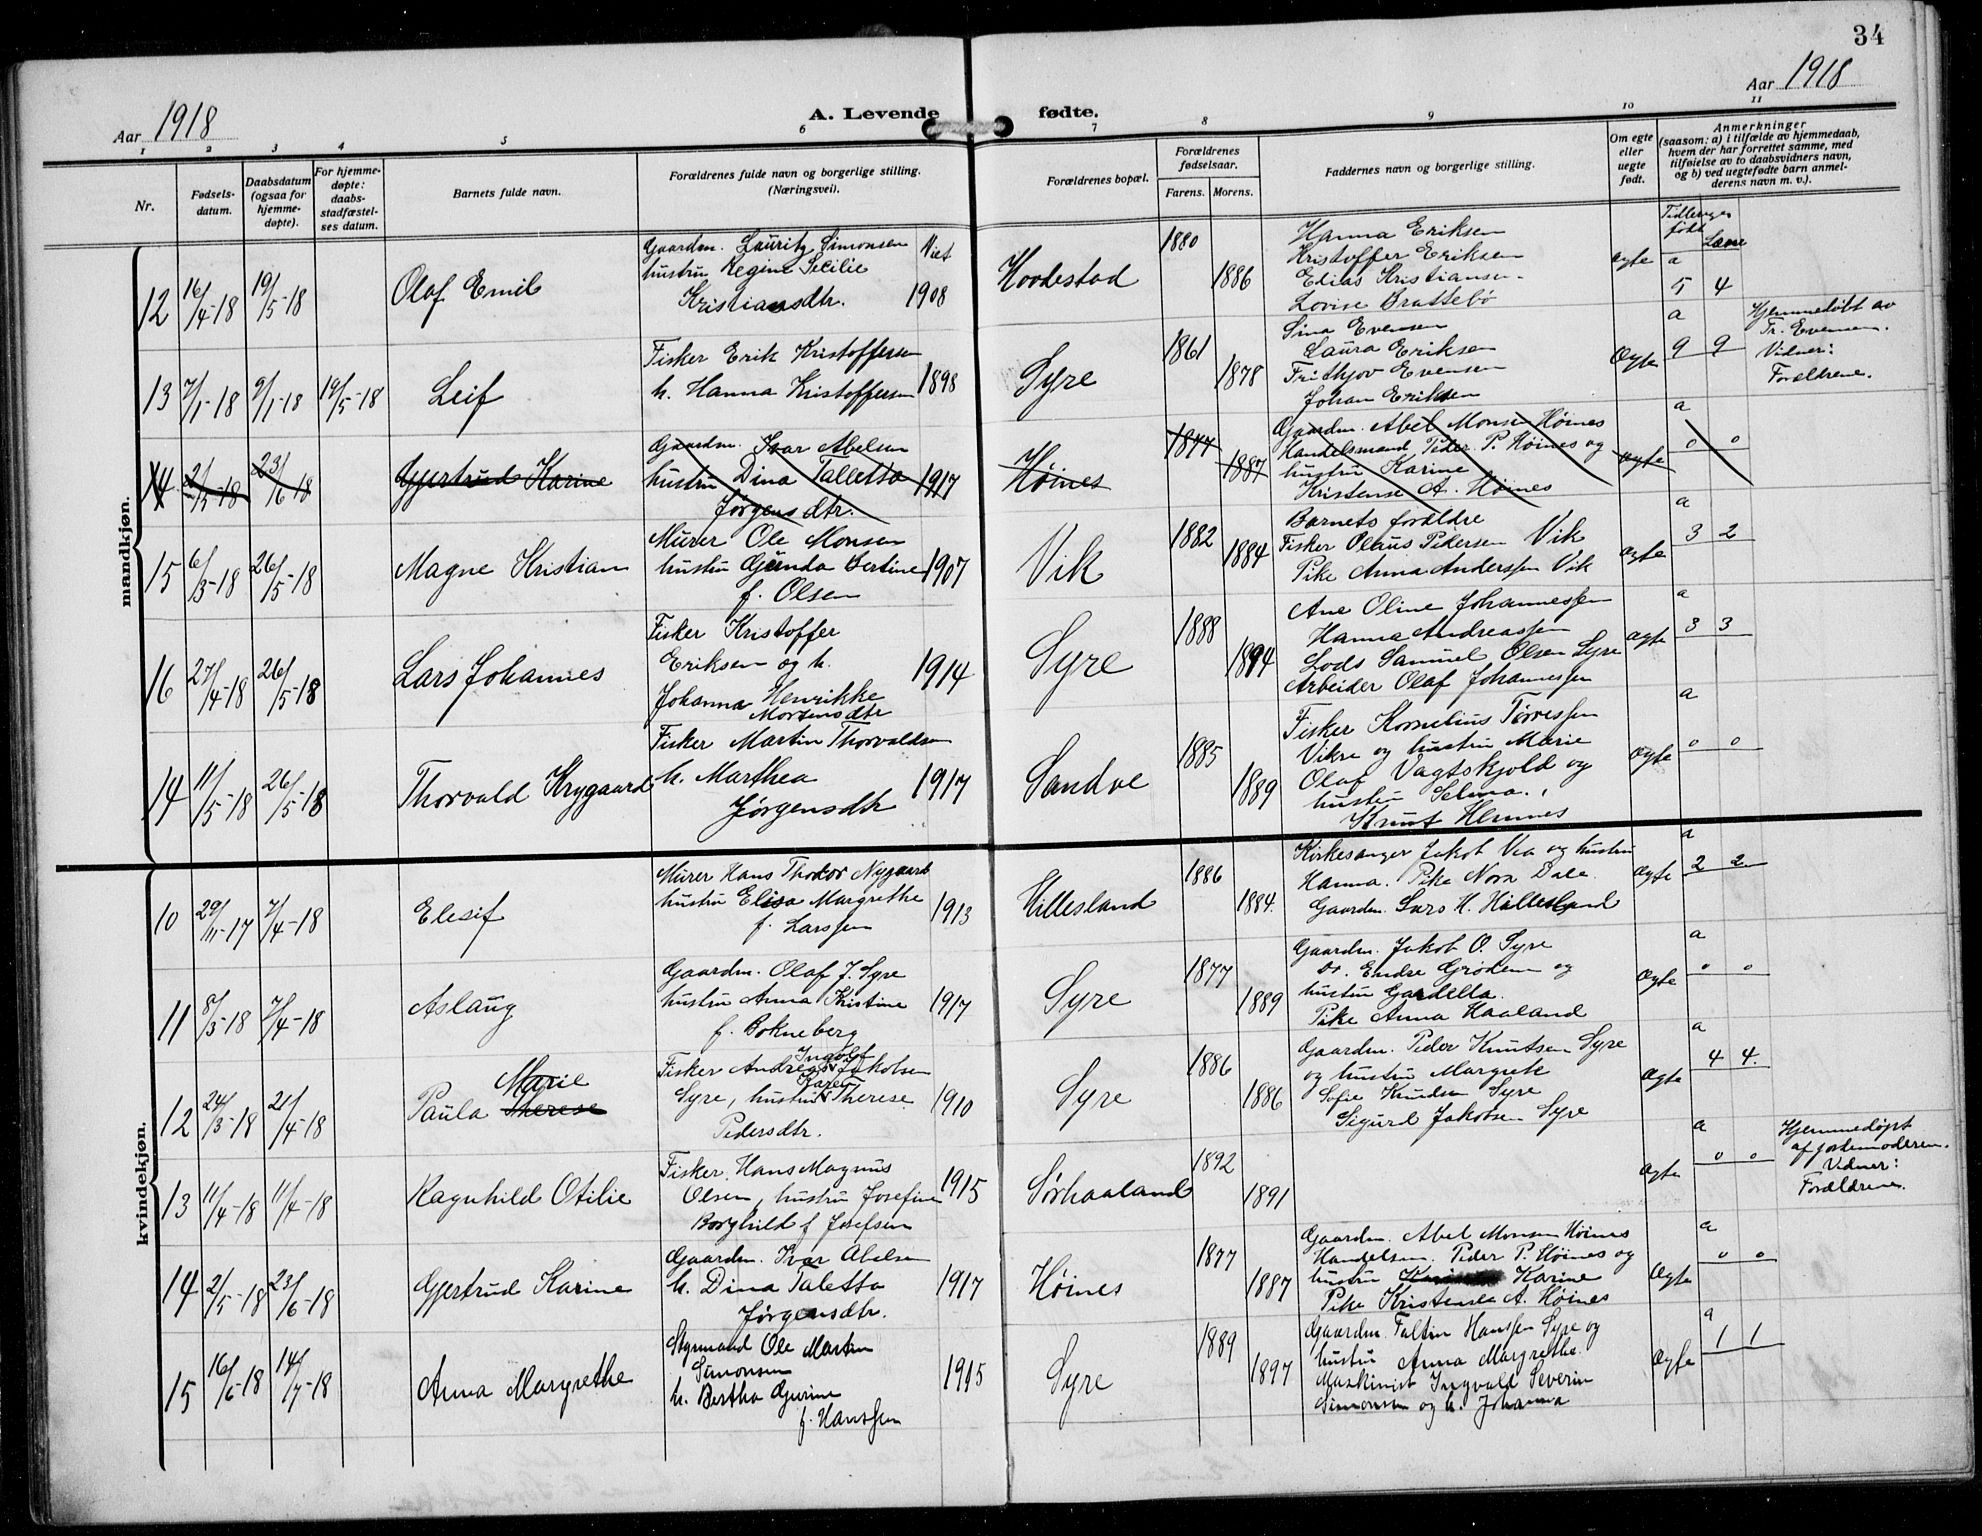 34
Aar 1918
A. Levende fødte.
Aar 1918
1 2 3 4 5 6 7 8 9 10 11
Nr.
Fødsels-
datum.
Daabsdatum
(ogsaa for
hjemme-
døpte).
For hjemme-
døpte:
daabs-
stadfæstel-
ses datum.
Barnets fulde navn.
Forældrenes fulde navn og borgerlige stilling.
(Næringsvei).
Forældrenes bopæl.
Forældrenes
fødselsaar.
Farens. Morens.
Faddernes navn og borgerlige stilling.
Om egte
eller
uegte
født.
Anmerkninger
(saasom: a) i tilfælde av hjemmedaab,
hvem der har forrettet samme, med
tilføielse av to daabsvidners navn,
og b) ved uegtefødte barn anmel-
derens navn m. v.).
mandkjøn.
12 16/4-18 19/5-18
Olaf Emil
Gaardm. Lauritz Simonsen
hustru Regine Secilie
Kristiansdtr.
Viet
1908
1880
1886
Hanna Eriksen
Kristoffer Eriksen
Elias Kristiansen
Lovise Brattebö
ægte
Tidligere
født Levee
a
5 4
13 7/1-18 9/1-18 19/5-18
Leif
Fisker Erik Kristoffersen
h. Hanna Kristoffersen
1898
Syre
1861
1878
Sina Evensen
Laura Eriksen
Frithjov Evensen
Johan Eriksen
Ægte
a
9 9
Hjemmedøbt av
Tr. Evensen.
Vidner:
Forældrene.
14 2/5-18 23/6-18
Gjertrud Karine
Gaardm. Ivar Abelsen
hustru Dina Talletta
Jørgensdtr.
1917
Høines
1877
1887
Gaardm. Abel Monsen Høines
Handelsmand Peder P. Høines og
hustru Karine
Kristense A. Høines
ægte
a
0 0
15 6/3-18 26/5-18
Magne Kristian
Murer Ole Monsen
hustru Gunda Bertine
f. Olsen
1907
Vik
1882
1884
Barnets forældre
Fisker Olaus Pedersen Vik
Pike Anna Anderssen Vik
ægte
a
3 2
16 27/4-18 26/5-18
Lars Johannes
Fisker Kristoffer
Eriksen og h.
Johanna Henrikke
Mortensdtr
1914
Syre
1888
1894
Ane Oline Johannessen
Hanna Andreassen
Lods Samuel Olsen Syre
Arbeider Olaf Johannessen
ægte
a
3 3
14 11/5-18 26/5-18
Thorvald Krygaard
Fisker Martin Thorvaldsen
h. Marthea
Jørgensdtr
1917
Sandve
1885
1889
Fisker Kornelius Tørressen
Vikre og hustru Marie
Olaf Vagtskjold og
hustru Selma.,
Knut Hemnes
Ægte
a
0 0
kvindekjøn.
10 29/11-17 7/4-18
Elesif
Murer Hans Thodor Nygaard
hustru Elisa Margrethe
f. Larssen
1913
Hillesland
1886
1884.
Kirkesanger Jakob Vea og hustru
Hanna. Pike Nora Dale
Gaardm. Lars H. Hillesland
Ægte
a
2 2
11 8/3-18 7/4-18
Aslaug
Gaardm. Olaf J. Syre
hustru Anna Kristine
f. Bokneberg
1917
Syre
1877
1889
Gaardm. Jakob O. Syre
Do. Endre Grødem og
hustru Gardella.
Pike Anna Haaland
Ægte
a
0 0
12 24/3-18 21/4-18
Marie
Paula Therese
Ingolf
Fisker Andreas Jakobsen
Karen
Syre, hustru Therese
Pedersdtr.
1910
Syre
1886
1886
Gaardm. Peder Knutsen Syre
og hustru Margrete
Sofie Knudsen Syre
Sigurd Jakobsen Syre
Ægte
a
4 4.
13 11/4-18 11/4-18
Ragnhild Otilie
Fisker Hans Magnus
Olsen, hustru Josefine
Borghild f Josefsen
1915
Sørhaaland
1892
1891
Ægte
a
0 0
Hjemmedøpt
af jordemoderen.
Vidner:
Forældrene.
14 2/5-18 23/6-18
Gjertrud Karine
Gaardm. Ivar Abelsen
h. Dina Taletta
Jørgensdtr.
1917
Høines
1877
1887
Gaardm. Abel Monsen Høines
Handelsm. Peder P. Høines og
hustru Karine
Pike Kristense A. Høines
Ægte
a
0 0
15 16/6-18 14/7-18
Anna Margrethe
Styrmand Ole Martin
Simonsen
h. Bertha Gurine
f. Hanssen
1915
Syre
1889
1897
Gaardm. Faltin Hanssen Syre og
hustru Anna Margrethe.
Maskinist Ingvald Severin
Simonsen og h. Johanna
Ægte
a
1 1